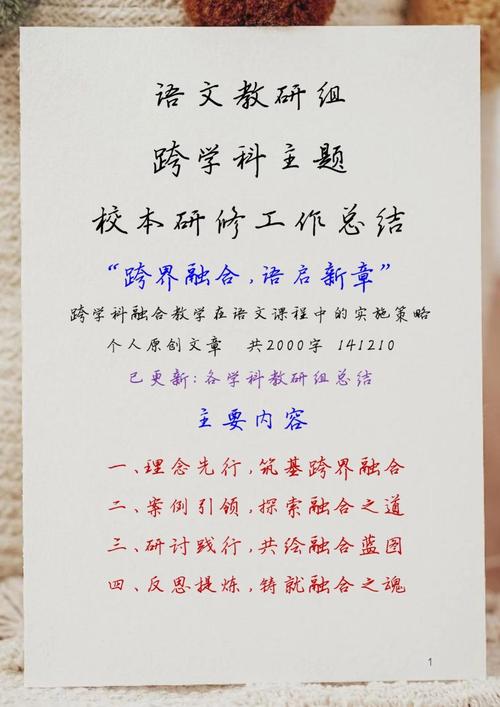 语文教研组
跨学科主题
校本研修工作总结
“跨界融合,语启新章”
跨学科融合教学在语文课程中的实施策略
个人原创文章 共2000字 141210
已更新:各学科教研组总结
主要内容
一、理念先行,筑基跨界融合
二、案例引领,探索融合之道
三、研讨践行,共绘融合蓝图
四、反思提炼,铸就融合之魂
1